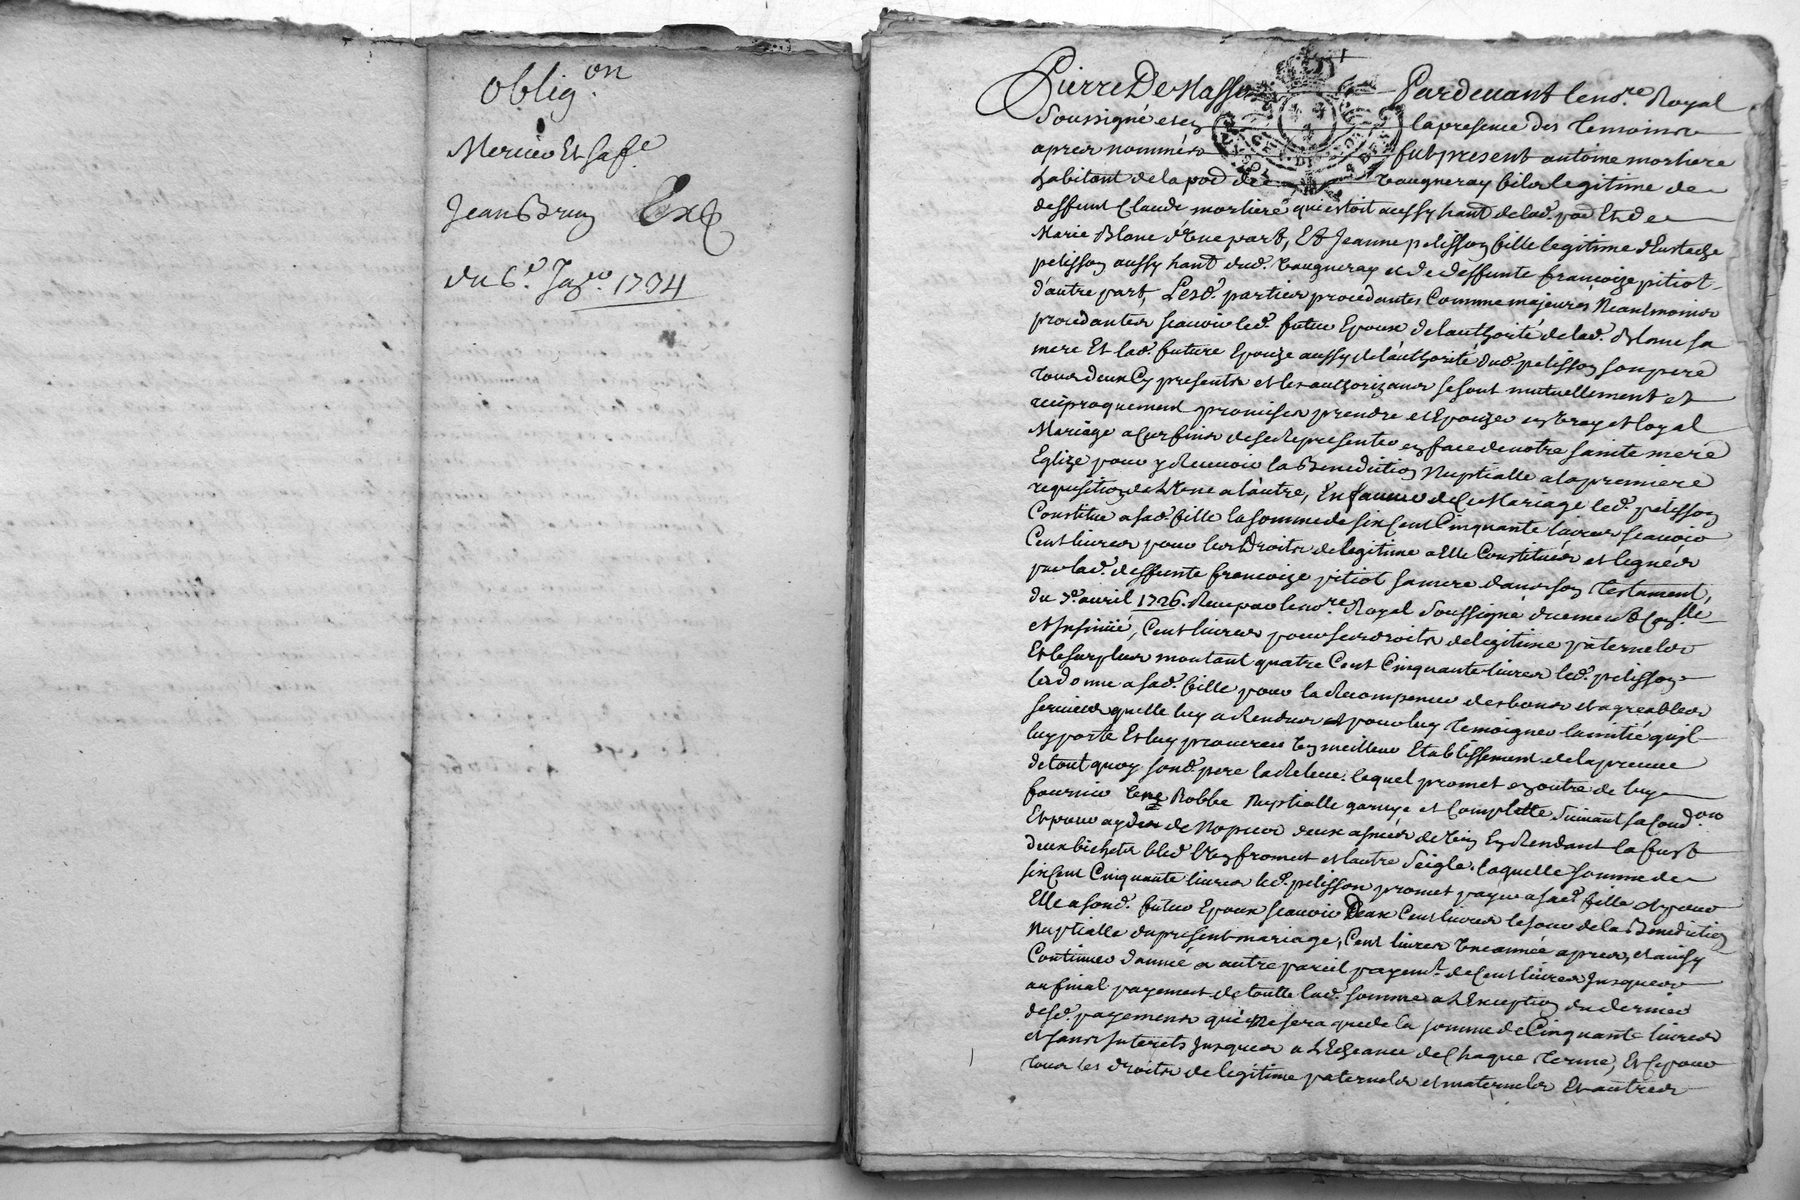 oblig.on
Mercier Et sa fe.
Jean Brun Exp
du 6e. Jar. 1734
Pierre De Masso Pardevant le no.re Royal
Soussigné et en la presence des temoins
apres nommés fut present antoine morliere
habitant de la pod de Vaugneray fils legitime de
deffunt Claude morliere qui estoit aussy hant de lad. pod Et de
Marie Blanc d'Une part, Et Jeanne pelisson fille legitime d'Eustache
pelisson aussy hant dud. Vaugneray et de deffunte francoize pitiot
d'autre part, Lesd. parties procedantes Comme majeures Neantmoins
procedantes scavoir led. futur Epoux de l'authorité de lad. Blanc sa
mere Et lad. future Epouze aussy de l'authorité dud. pelisson son pere
tous deux Cy presents et les authorizans se sont mutuellement et
reciproquement promises prendre et Epouzer en Vray et loyal
Mariage a Ces fins de se Representer en face de notre sainte mere
Eglize pour y Recevoir la Benediction Nuptialle a la premiere
requisition de L'Une a l'autre, En faveur de Ce Mariage led. pelisson
Constitue a sad. fille la somme de six Cent Cinquante livres scavoir
Cent livres pour les Droits de legitime a Elle Constitués et legués
par lad. deffunte francoize pitiot sa mere dans son Testament,
du 7e. avril 1726. Receu par le no.re Royal Soussigné duement Con.llé
et Insinué, Cent livres pour ses droits de legitime paternels
Et le surplus montant quatre Cent Cinquante livres led. pelisson
les donne a sad. fille pour la Recompense des bons et agreables
services quelle luy a Rendus et pour luy temoigner lamitié quil
luy porte Et luy procurer Un meilleur Etablissement de la preuve
de tout quoy sond. pere la Releve. lequel promet en outre de luy
fournir Une Robbe Nuptialle garnye et Complette Suivant sa Cond.on
Et pour ayder de Nopces deux asnées de vin En Rendant la fust
deux bichets bled l'Un froment et lautre Seigle, laquelle somme de
six Cent Cinquante livres led. pelisson promet payer a sad. fille et pour
Elle a sond. futur Epoux scavoir Deux Cent livres le jour de la Benediction
Nuptialle du present mariage, Cent livres Une année apres, et ainsy
Continuer d'année a autre pareil payemt. de Cent livres Jusques
au final payement de toutte lad. somme a L'Exception du dernier
desd. payements qui Ne sera que de la somme de Cinquante livres
et sans Interets Jusques a L'Echeance de Chaque terme, Et Ce pour
tous les droits de legitime paternels et maternels Et autres